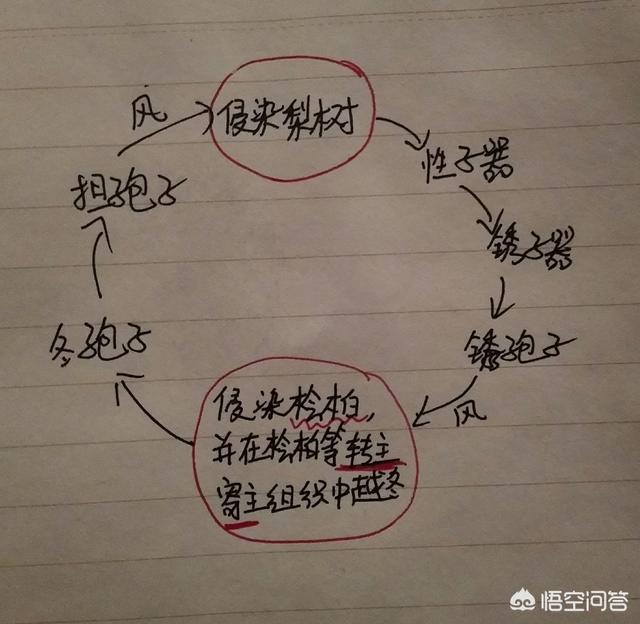 风
侵染梨树
性子器
锈子器
锈孢子
风
侵染桧柏,
并在桧柏等转主
寄主组织中越冬
冬孢子
担孢子
悟空问答